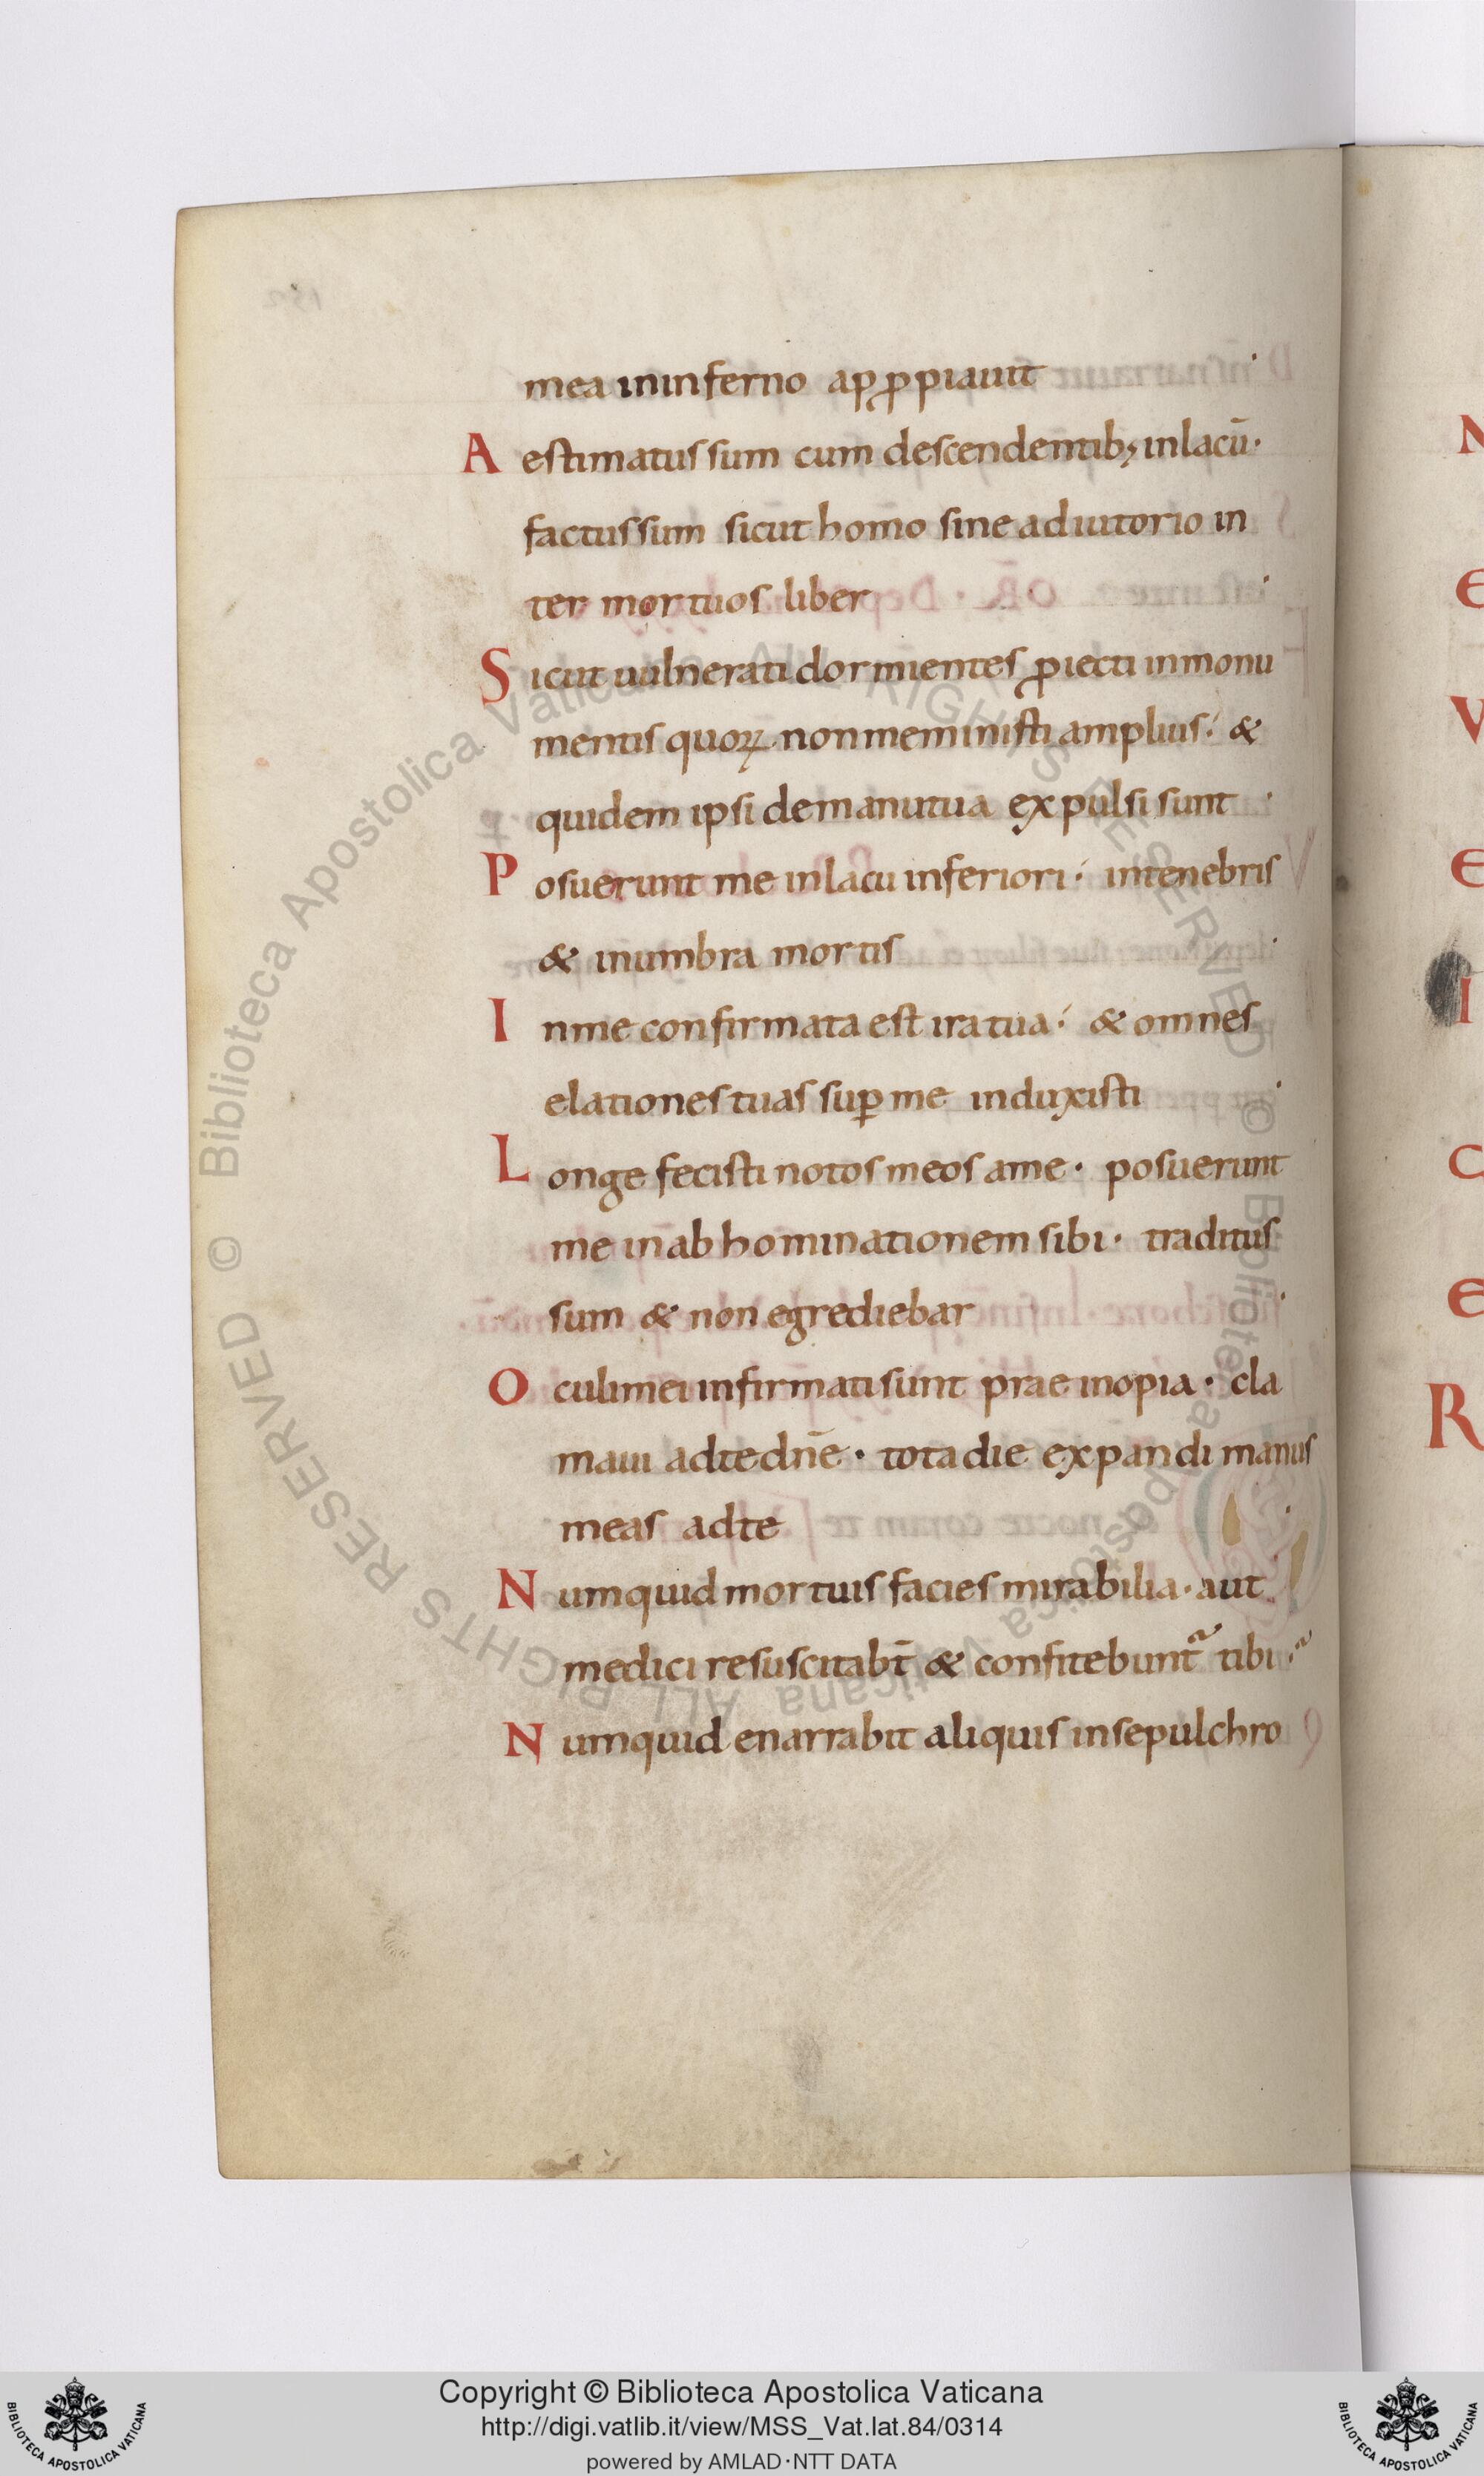 mea ininferno apꝓpiauit
Aestimatus sum cum descendentibꝫ inlacū·
factus sum sicut homo sine adiutorio in
ter mortuos liber
Sicut uulnerati dormientes ꝓiecti inmonu
mentis quoꝝ nonmeministi amplius· &
quidem ipsi demanutua expulsi sunt
Posuerunt me inlacu inferiori· intenebris
& inumbra mortis
Inme confirmata est ira tua· & omnes
elationes tuas suꝑ me induxisti
Longe fecisti notos meos ame· posuerunt
me inabhominationem sibi· traditus
sum & non egrediebar
Oculi mei infirmati sunt prae inopia· cla
maui adte dn̄e· tota die expandi manus
meas adte
Numquid mortuis facies mirabilia· aut
medici resuscitabt̄ & confitebunt᷑ tibi·
Numquid enarrabit aliquis insepulchro
N
E
V
E
I
C
E
R
© Biblioteca Apostolica Vaticana ALL RIGHTS RESERVED © Biblioteca Apostolica Vaticana ALL RIGHTS RESERVED
Copyright © Biblioteca Apostolica Vaticana
http://digi.vatlib.it/view/MSS_Vat.lat.84/0314
powered by AMLAD·NTT DATA
BIBLIOTECA APOSTOLICA VATICANA
BIBLIOTECA APOSTOLICA VATICANA